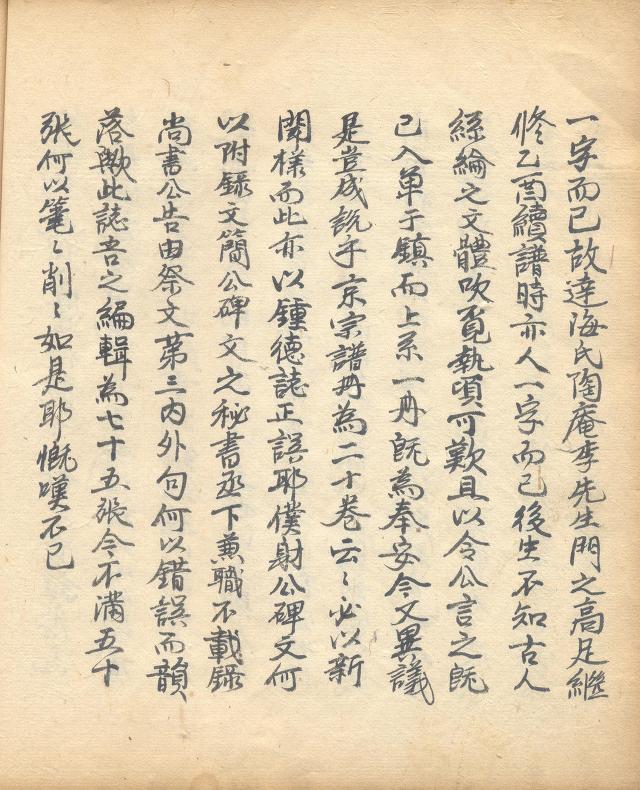 一字而已故達海氏陶庵李先生門之高足繼
修乙酉續譜時亦人一字而已後生不知古人
絲綸之文體吹覓執頃可歎且以令公言之旣
已入單于鎮而上系一冊旣為奉安今又異議
是豈成說乎京宗譜冊為二十卷云〻必以新
聞樣而此亦以鍾德誌正誤耶僕射公碑文何
以附錄文簡公碑文之秘書丞下兼職不載錄
尚書公告由祭文第三內外句何以錯誤而韻
落歟此誌吾之編輯為七十五張今不滿五十
張何以筆〻削〻如是耶慨嘆不已